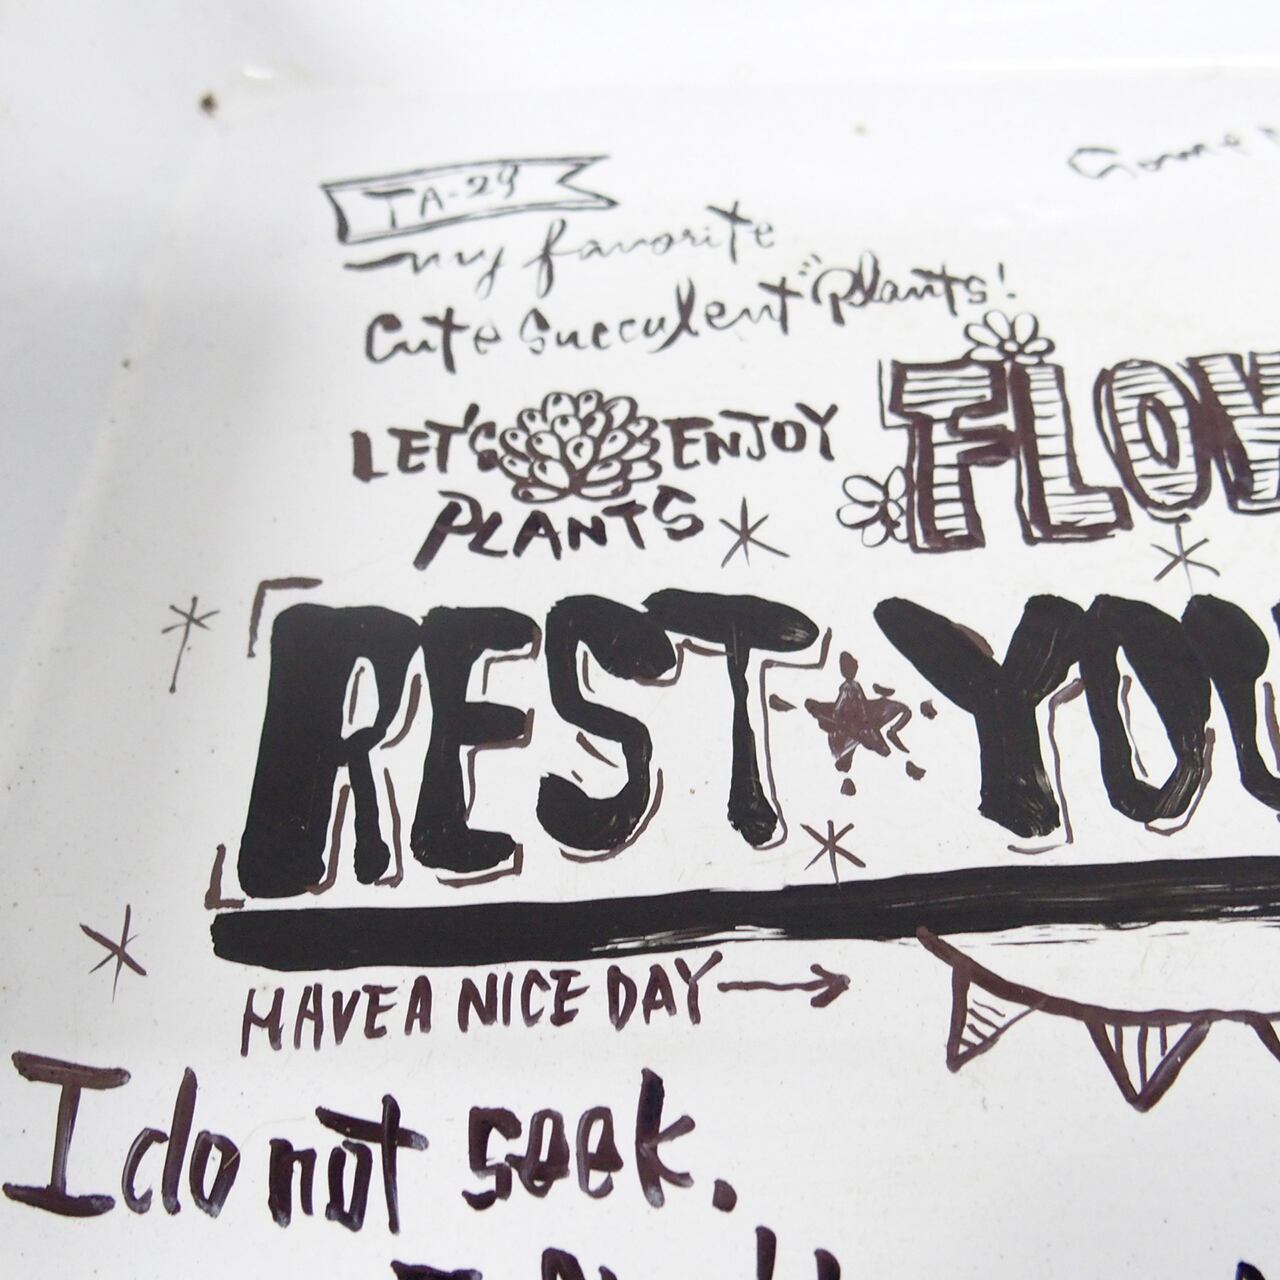 TA-29
my favorite
Cute Succulent "Plants!
LET'S ENJOY
PLANTS
FLOW
REST YOU
HAVE A NICE DAY →
I do not seek.